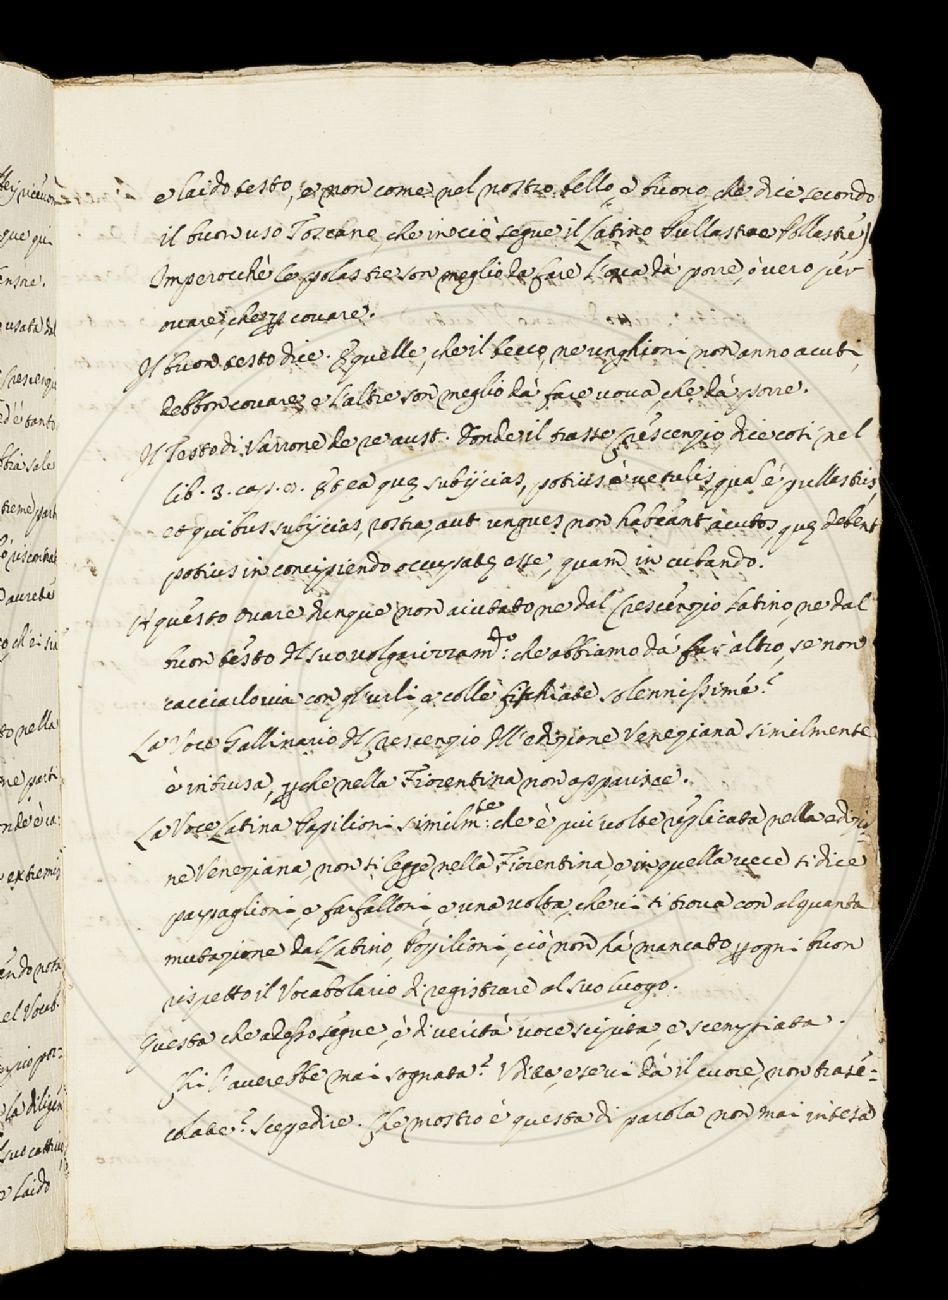 e laido testo, e non come nel nostro bello, e buono, che dice secondo
il buon uso Toscano, che in ciò segue il Latino Pullastrae Pollastre)
Imperocchè le polastre son meglio da fare l'ova dà porre, ò vero per
ovare, che p covare.
Il buon testo dice. E quelle, che il becco, ne unghioni non anno acuti,
debbon covare, e l'altre son meglio dà fare vova, che dà porre.
Il Testo di Varrone de re rust. donde il trasse Crescenzio, dice così nel
lib. 3. cap. 9. Et ea quę subijcias, potius è vetulis, quá é pullastris,
et quibus subijcias, rostra, aut ungues non habeant acutos, quę debent
potius in concipiendo occupatę esse, quam in cubando.
A questo ovare dunque non aiutato ne dal Crescenzio Latino, ne dal
buon testo del suo volgarizzamdo: che abbiamo dá far altro, se non
cacciarlo via con gl'urli, e colle fischiate solennissime?
La Voce Gallinario del Crescenzio dell'edizione Veneziana similmente
è intrusa, pche nella Fiorentina non apparisce.
La Voce Latina Papilioni similmte: che è piú volte replicata nella edizio=
ne Veneziana, non si legge nella Fiorentina, e in quella vece si dice
parpaglioni, e farfalloni, e una volta, che vi si trova con alquanta
mutazione dal Latino, Papilioni, ciò non há mancato p ogni buon
rispetto il Vocabolario di registrare al suo luogo.
Questa che adesso segue, è di veritá voce scipita, e scempiata.
Chi l'averebbe mai sognata? Udite, e se vi dá il cuore, non trase=
colate? Scegedire. Che mostro é questa di parola non mai intesa